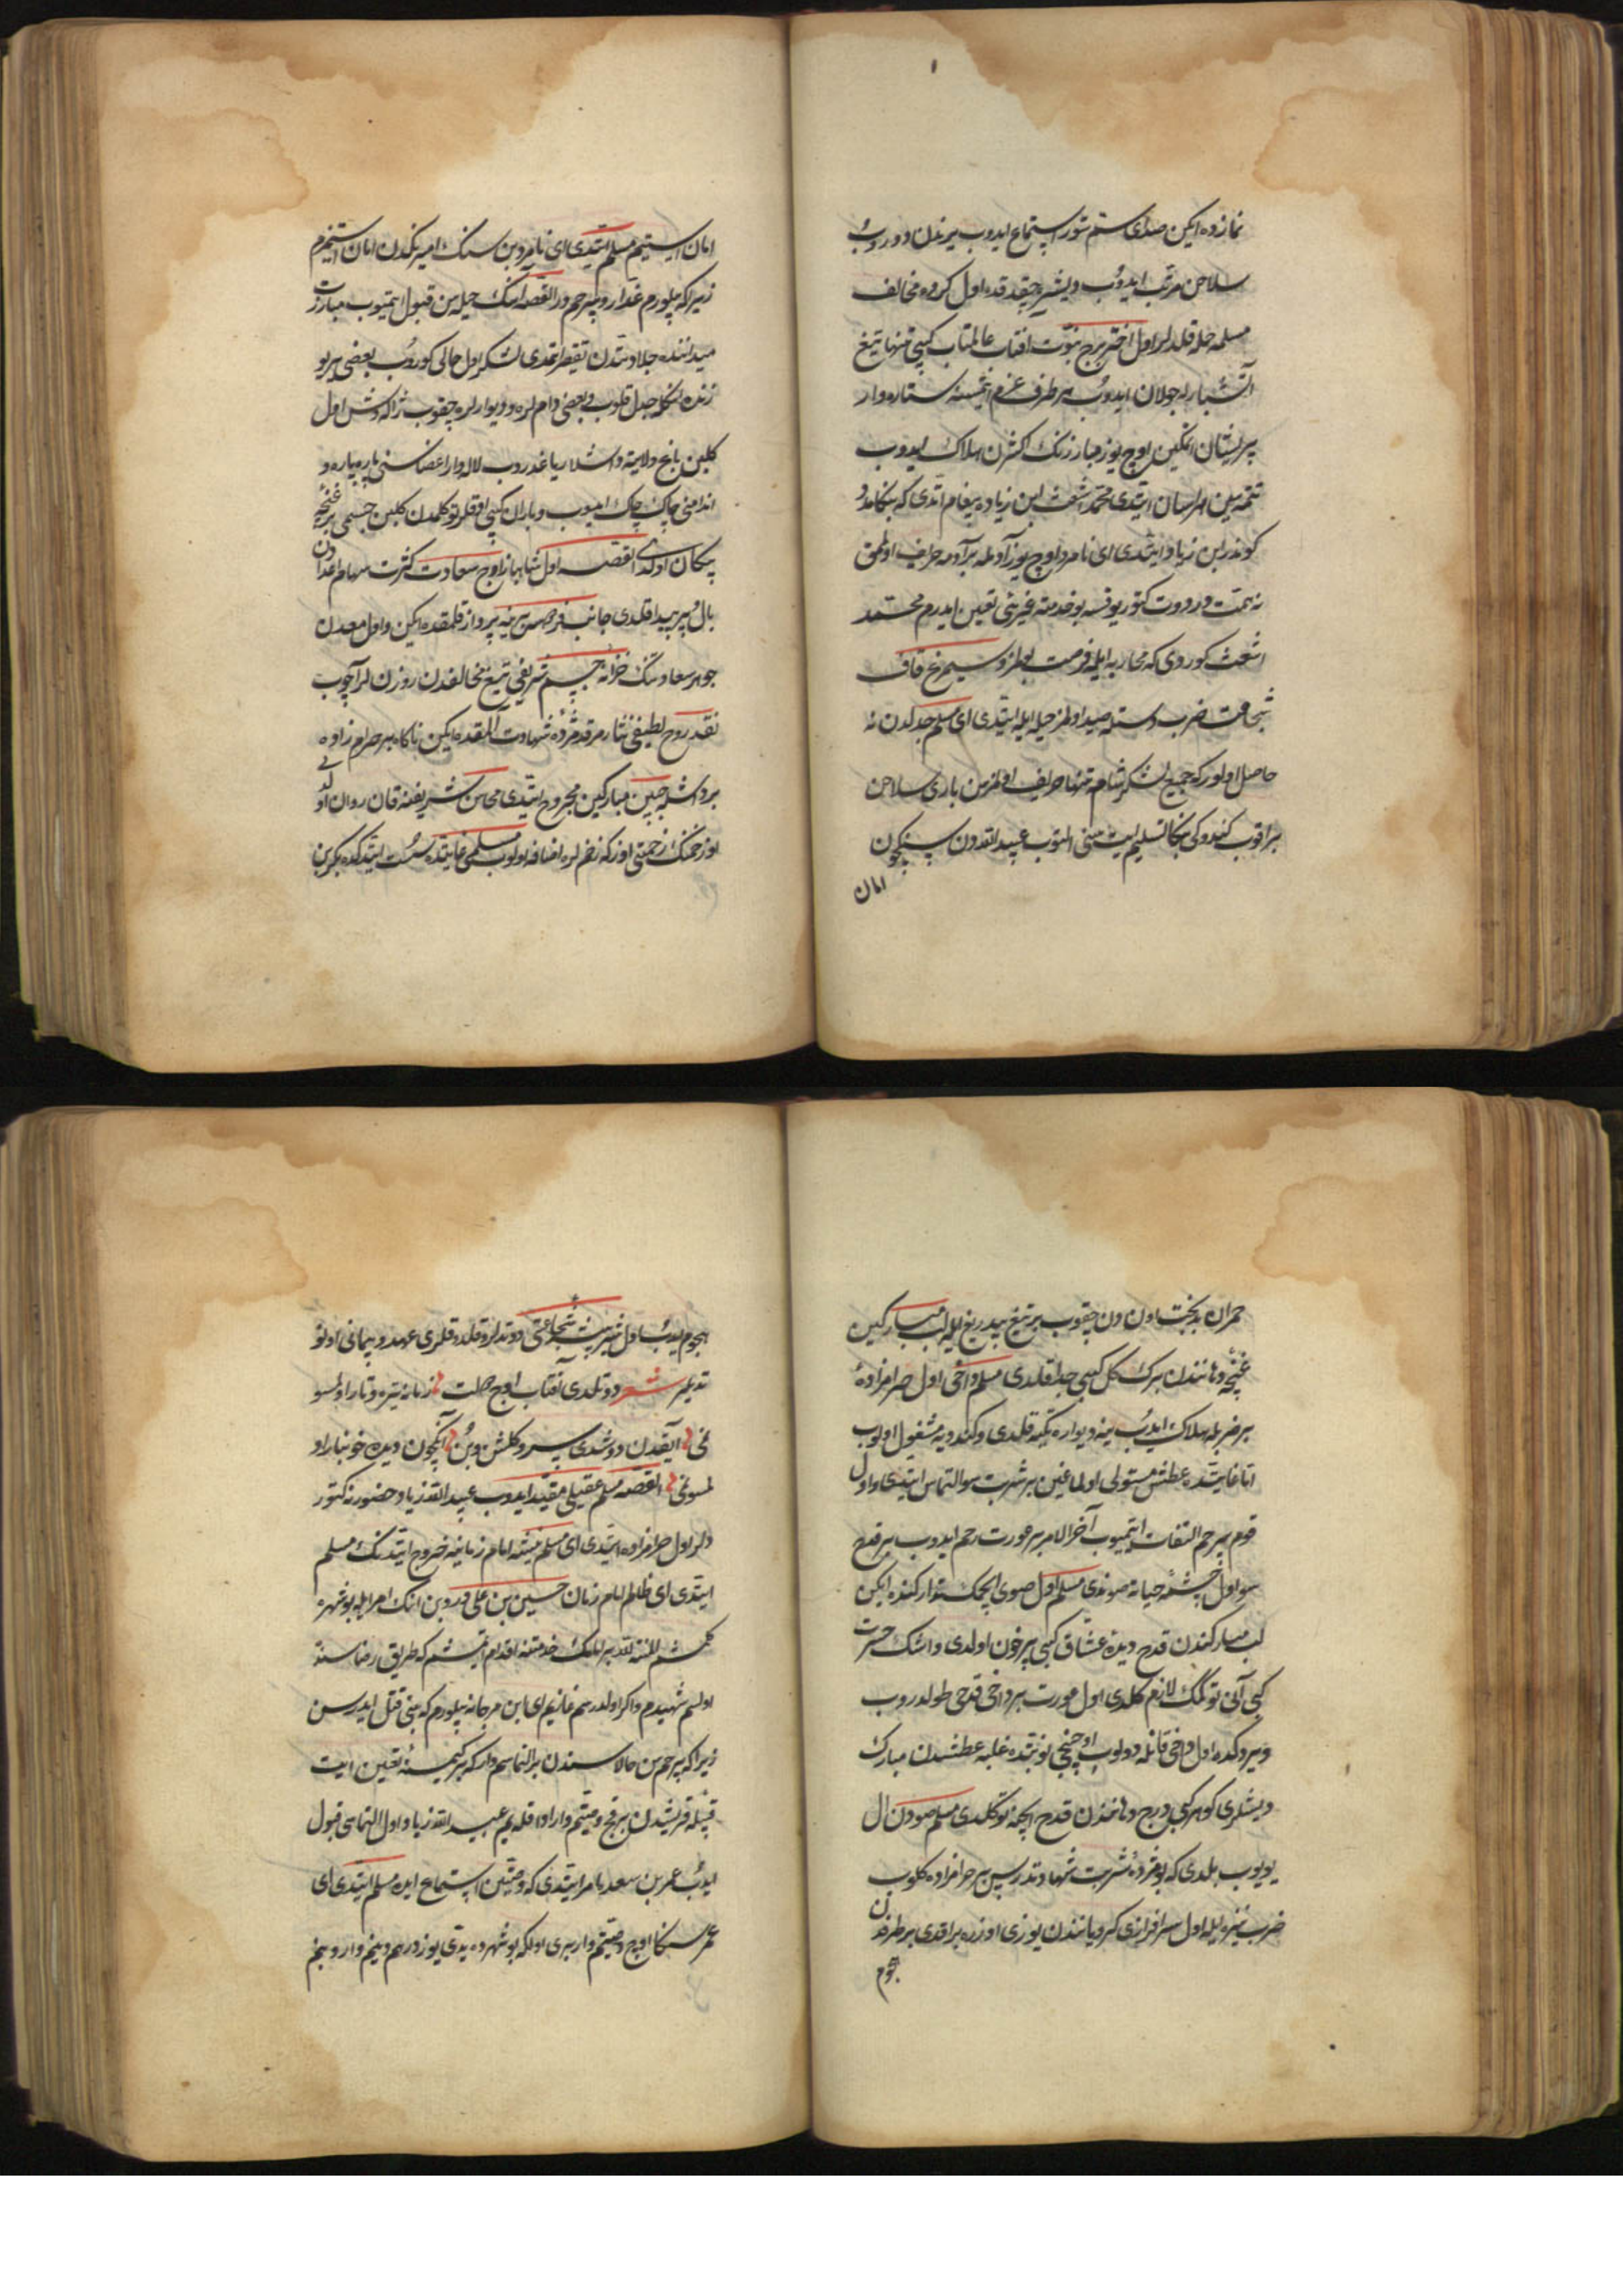 نمازده ایکن صدای ستم ستور استماع ایدوب یرندن دوروب
سلاحن مرتب ایدوب ویشره چیقدقده اول کروه مخالف
مسلمه حمله قلدلر اول اختر برج نبوت افتاب عالمتاب کیبی تنها تیغ
آتشبارله جولان ایدوب هر طرفه عزم ایتمسنه ستاره وار
پریشان ایتکین اوچ یوز مبارزنک اکثرن هلاک ایدوب
تتمه سین هراسان ایتدی محمد اشعث ابن زیاده پیغام اتدی که بنکا مدد
کوندر ابن زیاد ایتدی ای نامرد اوچ یوز آدمله بر آدمه حریف اولمق
نه همتدر دوت کتور یوخسه بو خدمته غیری تعین ایدرم محمد
اشعث کوردی که محاربه ایله فرصت بولمز و سیمرغ قاف
شجاعت ضرب دستله صید اولمز حیله ایله ایتدی ای مسلم جدلدن نه
حاصل اولور که جمیع لشکر شامه تنها حریف اولمزسن باری سلاحن
براقوب کندوکی بنکا تسلیم ایت سنی التوب عبیدالله دن سنکچون
امان
امان استیم مسلم ایتدی ای نامرد بن سنک امیرنکدن امان استیزم
زیرا که بیلورم غدار و بیرحمدر القصه انک حیله سن قبول ایتمیوب مبارزت
میداننده جلادتدن تقصیر اتمدی لشکر اول حالی کوروب بعضی برو
زنده انکله جدل قلوب و بعضی داملره و دیوارلره چقوب ژاله وش اول
کلبن باغ ولایته داشلار یاغدروب لاله وار اعضاسنی پاره پاره و
اندامنی چاک چاک ایدیوب و باران کیبی اوقلر توکلمدن کلبن جسمی پر غنچه
پیکان اولدی القصه اول شاهباز اوج سعادت کثرت سهام اعدادن
بال و پر پیدا قلدی جانب فردوس برینه پرواز قلمقده ایکن و اول معدن
جوهر سعادتنک خزانه جسم شریفی تیغ مخالفدن روزنلر آچوب
نقد روح لطیفی نثار مرقد مژده شهادت آلمقده ایکن ناکاه بر حرام زاده
بر داشله جبین مبارکین مجروح ایتدی محاسن شریفنه قان روان اولدی
اوز خمنک زحمتی اوزکه زخملره اضافه اولوب مسلمی غایتده سست ایتدکده بکر بن
حمران بدبخت اون دن چقوب بر تیغ بیدریغ ایله لب مبارکین
غنچه دهانندن برک کل کیبی جدا قلدی مسلم داخی اول حرامزاده
بر ضربله هلاک ایدب ینه دیواره تکیه قلدی و کندویه مشغول اولوب
اتا غایتده عطش مستولی اولماغین بر شربت سو التماس ایتدی و اول
قوم بیرحم التفات ایتمیوب آخر الامر بر عورت رحم ایدوب بر قدح
سو اول چشمه حیاته صوندی مسلم اول صوی ایچمک استدارکنده ایکن
لب مبارکندن قدح دیده عشاق کیبی پر خون اولدی و اشک حسرت
کیبی آنی توکمک لازم کلدی اول عورت بر داخی قدحی طولدروب
ویردکده اول داخی قانله دولوب اوچنجی نوبتده غلبه عطشدن مبارک
دیشلری کوهر کیبی درج دهانندن قدح ایچنه توکلدی مسلم صودن ال
یویوب بلدی که بو مژده شربت شهادتدر پس بر حرامزاده کلوب
ضرب نیزه ایله اول سرافرازی کرویانندن یوزی اوزره براقدی هر طرفدن
هجوم
هجوم ایدب اول شیر بیشه شجاعتی دوتدلر و قلده قلری عهد و پیمانی اونو
تدیلر شعر دوتلدی آفتاب اوج جهلت زمانه تیره و تار اولمسو
نمی ایقدن دوشدی سرو کلشن دین آنکچون دیده خونبار او
لمسونمی القصه مسلم عقیلی مقید ایدوب عبیدالله زیاد حضورنه کتور
دلر اول حرامزاده ایتدی ای مسلم نیته امام زمانه خروج ایتدنک مسلم
ایتدی ای ظالم امام زمان حسین بن علی در و بن انک امرایله بو شهره
کلمشم المنة لله بر املک خدمتنه اقدام ایتمشم که طریق رضاسنده
اولسم شهیدم و اکر اولدرسم غازیم ای ابن مرجانه بیلورم که بنی قتل ایدرسن
زیرا که بیرحمسن حالا سندن بر التماسم وار که بر کیمسنه تعین ایت
قبیله قریشدن بر قچ وصیتم وار ادا قله یم عبیدالله زیاد اول التماسی قبول
ایدب عمر بن سعده امر ایتدی که وصیتین استماع ایده مسلم ایتدی ای
عمر سنکا اوچ وصیتم وار بری اولکه بو شهرده یدی یوز درهم دینم وار و بنم